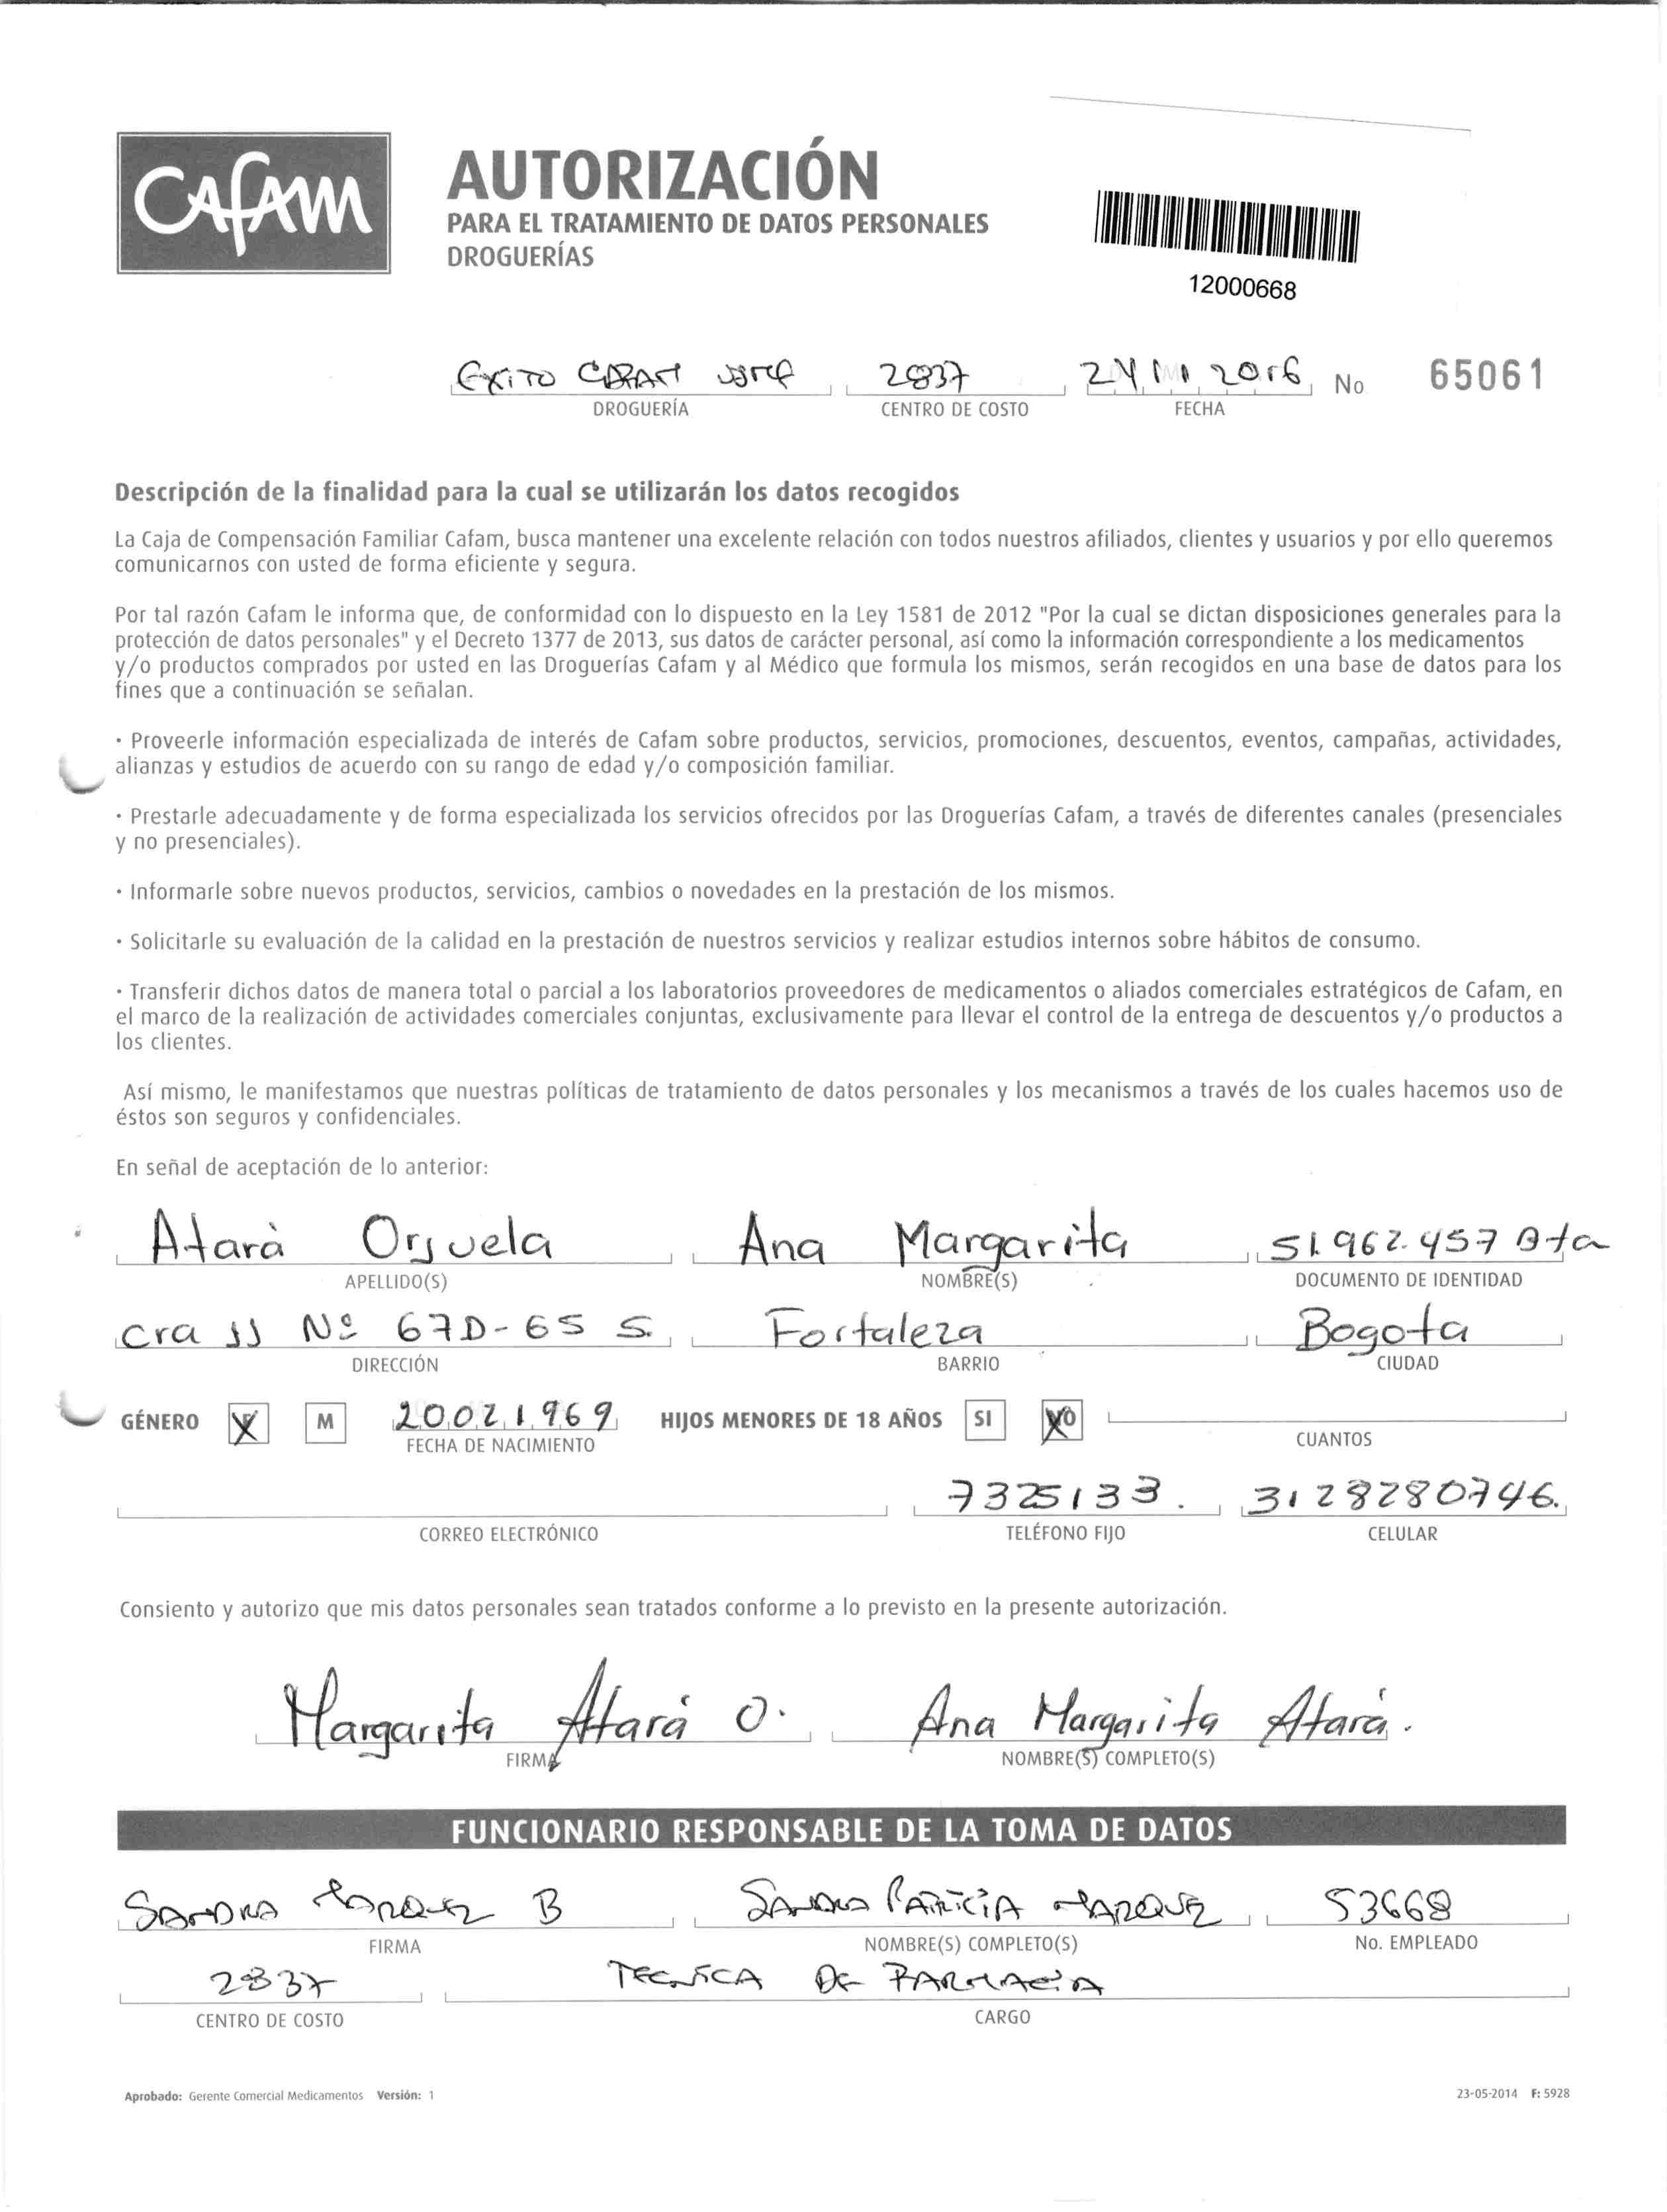 Cafam
AUTORIZACIÓN
PARA EL TRATAMIENTO DE DATOS PERSONALES
DROGUERÍAS
12000668
EXITO 2837 2016 No 65061
DROGUERÍA CENTRO DE COSTO FECHA
Descripción de la finalidad para la cual se utilizarán los datos recogidos
La Caja de Compensación Familiar Cafam, busca mantener una excelente relación con todos nuestros afiliados, clientes y usuarios y por ello queremos
comunicarnos con usted de forma eficiente y segura.
Por tal razón Cafam le informa que, de conformidad con lo dispuesto en la Ley 1581 de 2012 "Por la cual se dictan disposiciones generales para la
protección de datos personales" y el Decreto 1377 de 2013, sus datos de carácter personal, así como la información correspondiente a los medicamentos
y/o productos comprados por usted en las Droguerías Cafam y al Médico que formula los mismos, serán recogidos en una base de datos para los
fines que a continuación se señalan.
· Proveerle información especializada de interés de Cafam sobre productos, servicios, promociones, descuentos, eventos, campañas, actividades,
alianzas y estudios de acuerdo con su rango de edad y/o composición familiar.
· Prestarle adecuadamente y de forma especializada los servicios ofrecidos por las Droguerías Cafam, a través de diferentes canales (presenciales
y no presenciales).
· Informarle sobre nuevos productos, servicios, cambios o novedades en la prestación de los mismos.
· Solicitarle su evaluación de la calidad en la prestación de nuestros servicios y realizar estudios internos sobre hábitos de consumo.
· Transferir dichos datos de manera total o parcial a los laboratorios proveedores de medicamentos o aliados comerciales estratégicos de Cafam, en
el marco de la realización de actividades comerciales conjuntas, exclusivamente para llevar el control de la entrega de descuentos y/o productos a
los clientes.
Así mismo, le manifestamos que nuestras políticas de tratamiento de datos personales y los mecanismos a través de los cuales hacemos uso de
éstos son seguros y confidenciales.
En señal de aceptación de lo anterior:
Atarà Orjuela Ana Margarita 51.962.457 Bta
APELLIDO(S) NOMBRE(S) DOCUMENTO DE IDENTIDAD
cra Nº 67D-65 S. Fortaleza Bogota
DIRECCIÓN BARRIO CIUDAD
GÉNERO X M 20021969 HIJOS MENORES DE 18 AÑOS SI NO
FECHA DE NACIMIENTO CUANTOS
7325133. 3128280746.
CORREO ELECTRÓNICO TELÉFONO FIJO CELULAR
Consiento y autorizo que mis datos personales sean tratados conforme a lo previsto en la presente autorización.
Margarita Atará O. Ana Margarita Atará.
FIRMA NOMBRE(S) COMPLETO(S)
FUNCIONARIO RESPONSABLE DE LA TOMA DE DATOS
SANDRA MARQUEZ B SANDRA PATRICIA MARQUEZ 53668
FIRMA NOMBRE(S) COMPLETO(S) No. EMPLEADO
2837 TECNICA DE FARMACIA
CENTRO DE COSTO CARGO
Aprobado: Gerente Comercial Medicamentos Versión: 1 23-05-2014 F: 5928